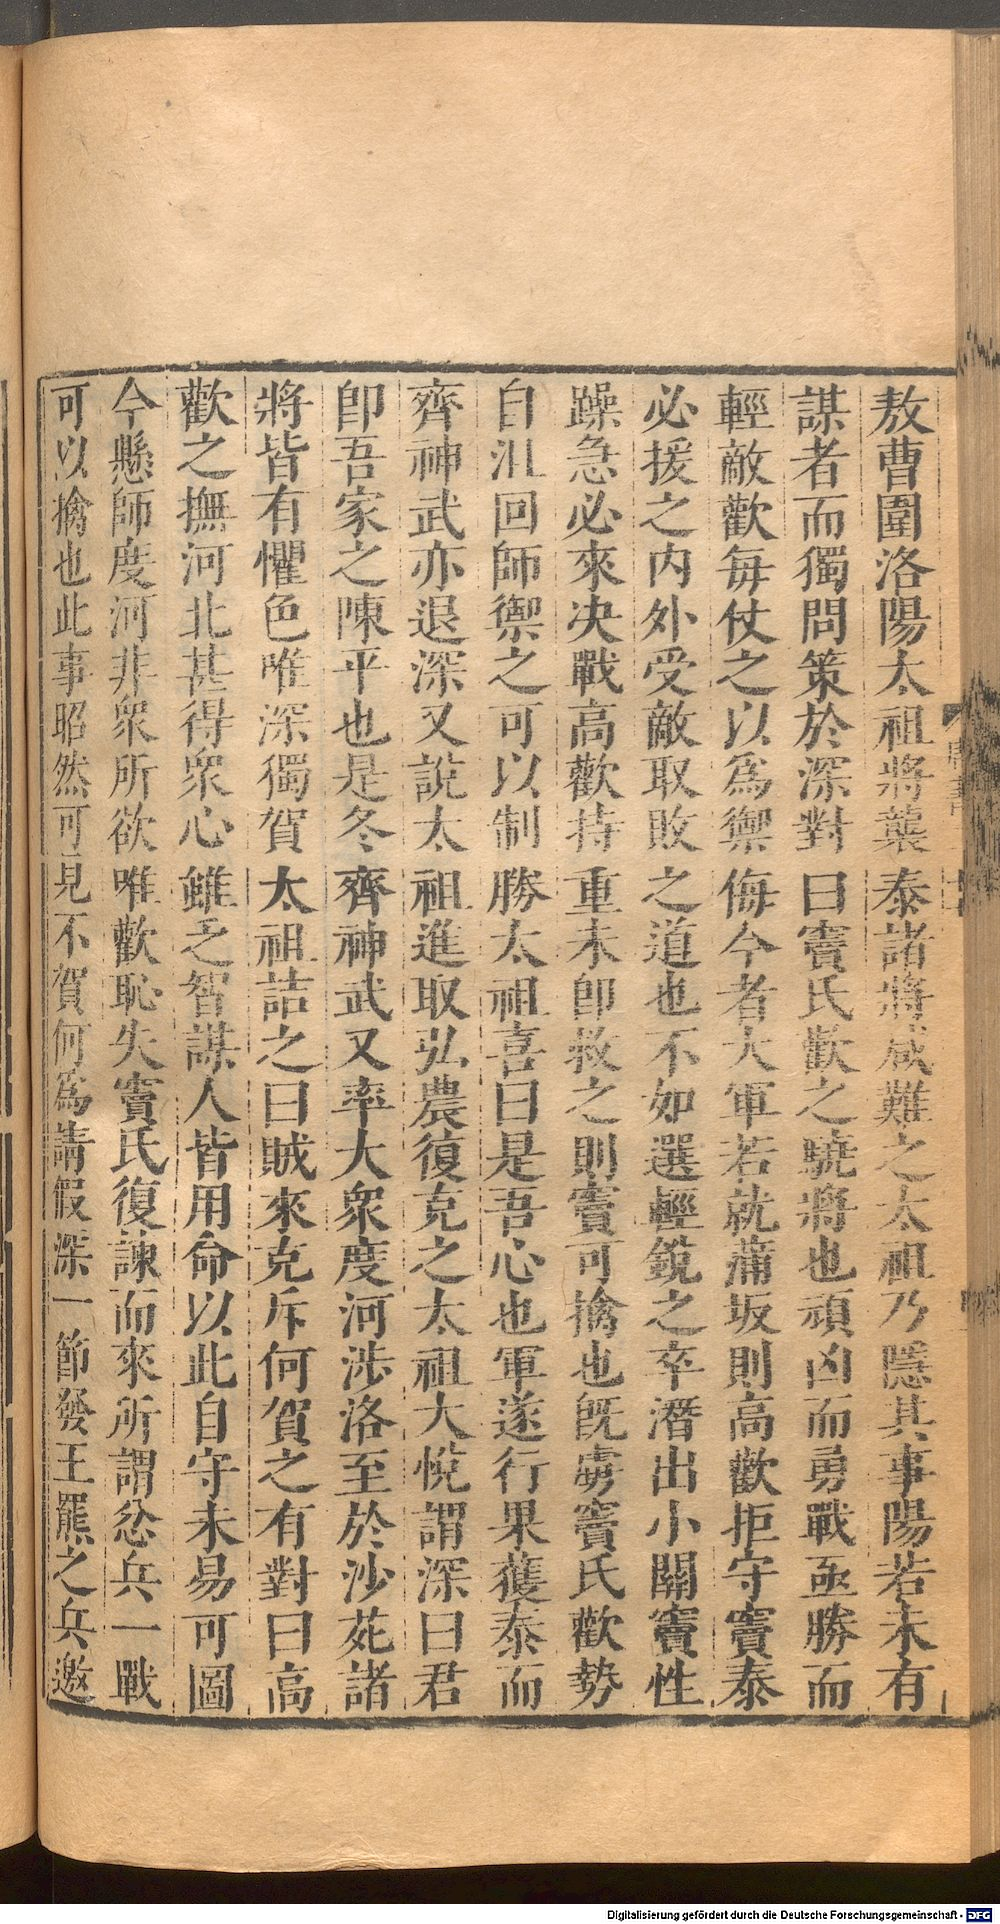 敖曹圍洛陽太祖將襲泰諸將咸難之太祖乃隱其事陽若未有
謀者而獨問策於深對曰竇氏歡之驍將也頑凶而勇戰亟勝而
輕敵歡每仗之以爲禦侮今者大軍若就蒲坂則高歡拒守竇泰
必援之内外受敵取敗之道也不如選輕銳之卒潛出小關竇性
躁急必來决戰高歡持重未卽救之則竇可擒也旣虜竇氏歡勢
自沮回師禦之可以制勝太祖喜曰是吾心也軍遂行果獲泰而
齊神武亦退深又說太祖進取弘農復克之太祖大悅謂深曰君
卽吾家之陳平也是冬齊神武又率大衆度河涉洛至於沙苑諸
將皆有懼色唯深獨賀太祖詰之曰賊來克斥何賀之有對曰高
歡之撫河北甚得衆心雖乏智謀人皆用命以此自守未易可圖
今懸師度河非衆所欲唯歡恥失竇氏復諫而來所謂忿兵一戰
可以擒也此事昭然可見不賀何爲請假深一節發王羆之兵邀
Digitalisierung gefördert durch die Deutsche Forschungsgemeinschaft - DFG